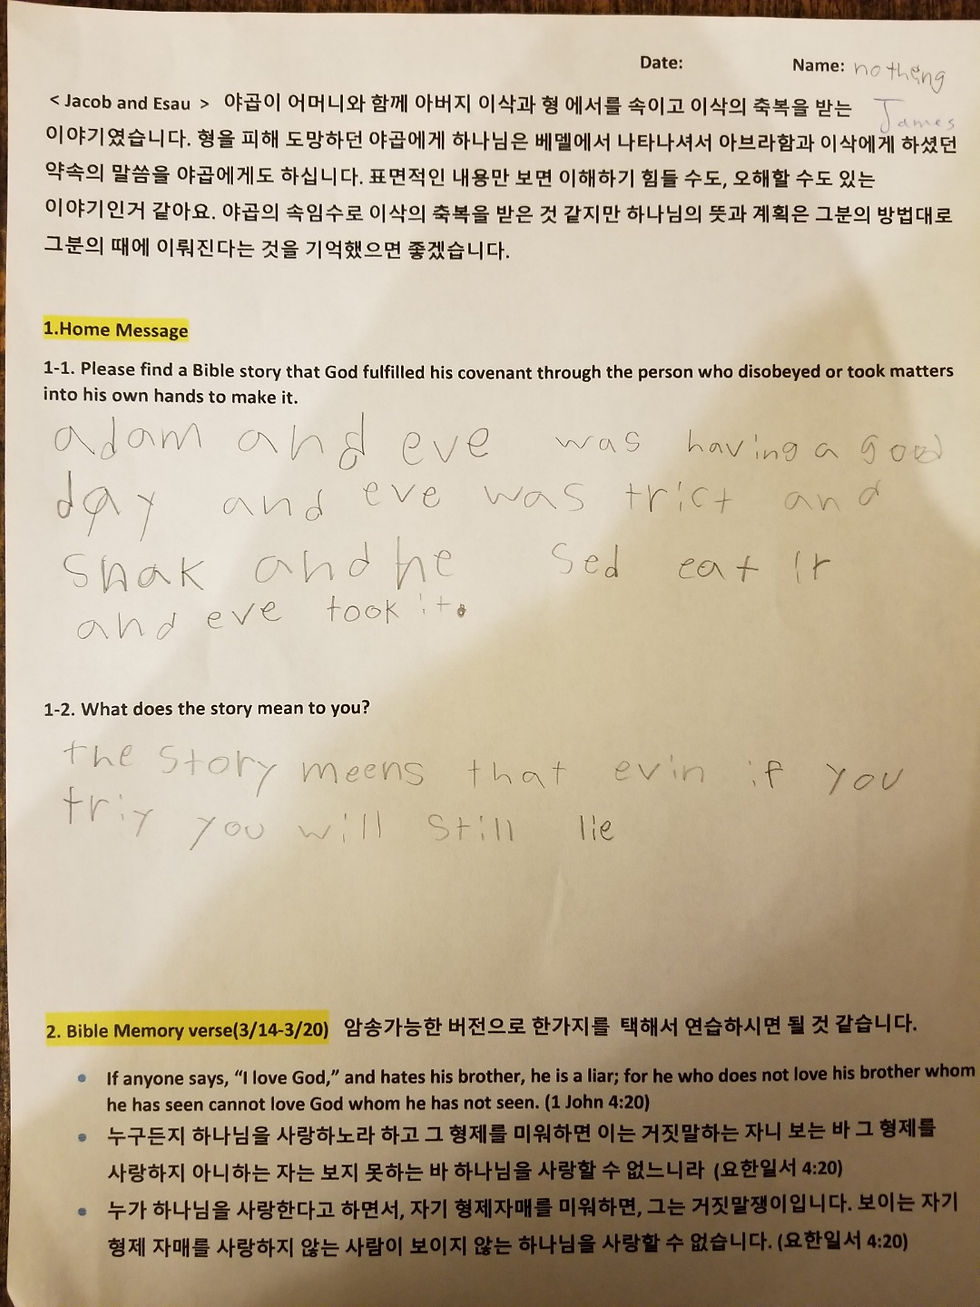 Date: Name: nothing
< Jacob and Esau > 야곱이 어머니와 함께 아버지 이삭과 형 에서를 속이고 이삭의 축복을 받는
James
이야기였습니다. 형을 피해 도망하던 야곱에게 하나님은 베델에서 나타나셔서 아브라함과 이삭에게 하셨던
약속의 말씀을 야곱에게도 하십니다. 표면적인 내용만 보면 이해하기 힘들 수도, 오해할 수도 있는
이야기인거 같아요. 야곱의 속임수로 이삭의 축복을 받은 것 같지만 하나님의 뜻과 계획은 그분의 방법대로
그분의 때에 이뤄진다는 것을 기억했으면 좋겠습니다.
1.Home Message
1-1. Please find a Bible story that God fulfilled his covenant through the person who disobeyed or took matters
into his own hands to make it.
adam and eve was having a good
day and eve was trict and
snak and he sed eat it
and eve took it.
1-2. What does the story mean to you?
the story meens that evin if you
triy you will still lie
2. Bible Memory verse(3/14-3/20) 암송가능한 버전으로 한가지를 택해서 연습하시면 될 것 같습니다.
• If anyone says, “I love God,” and hates his brother, he is a liar; for he who does not love his brother whom
he has seen cannot love God whom he has not seen. (1 John 4:20)
• 누구든지 하나님을 사랑하노라 하고 그 형제를 미워하면 이는 거짓말하는 자니 보는 바 그 형제를
사랑하지 아니하는 자는 보지 못하는 바 하나님을 사랑할 수 없느니라 (요한일서 4:20)
• 누가 하나님을 사랑한다고 하면서, 자기 형제자매를 미워하면, 그는 거짓말쟁이입니다. 보이는 자기
형제 자매를 사랑하지 않는 사람이 보이지 않는 하나님을 사랑할 수 없습니다. (요한일서 4:20)